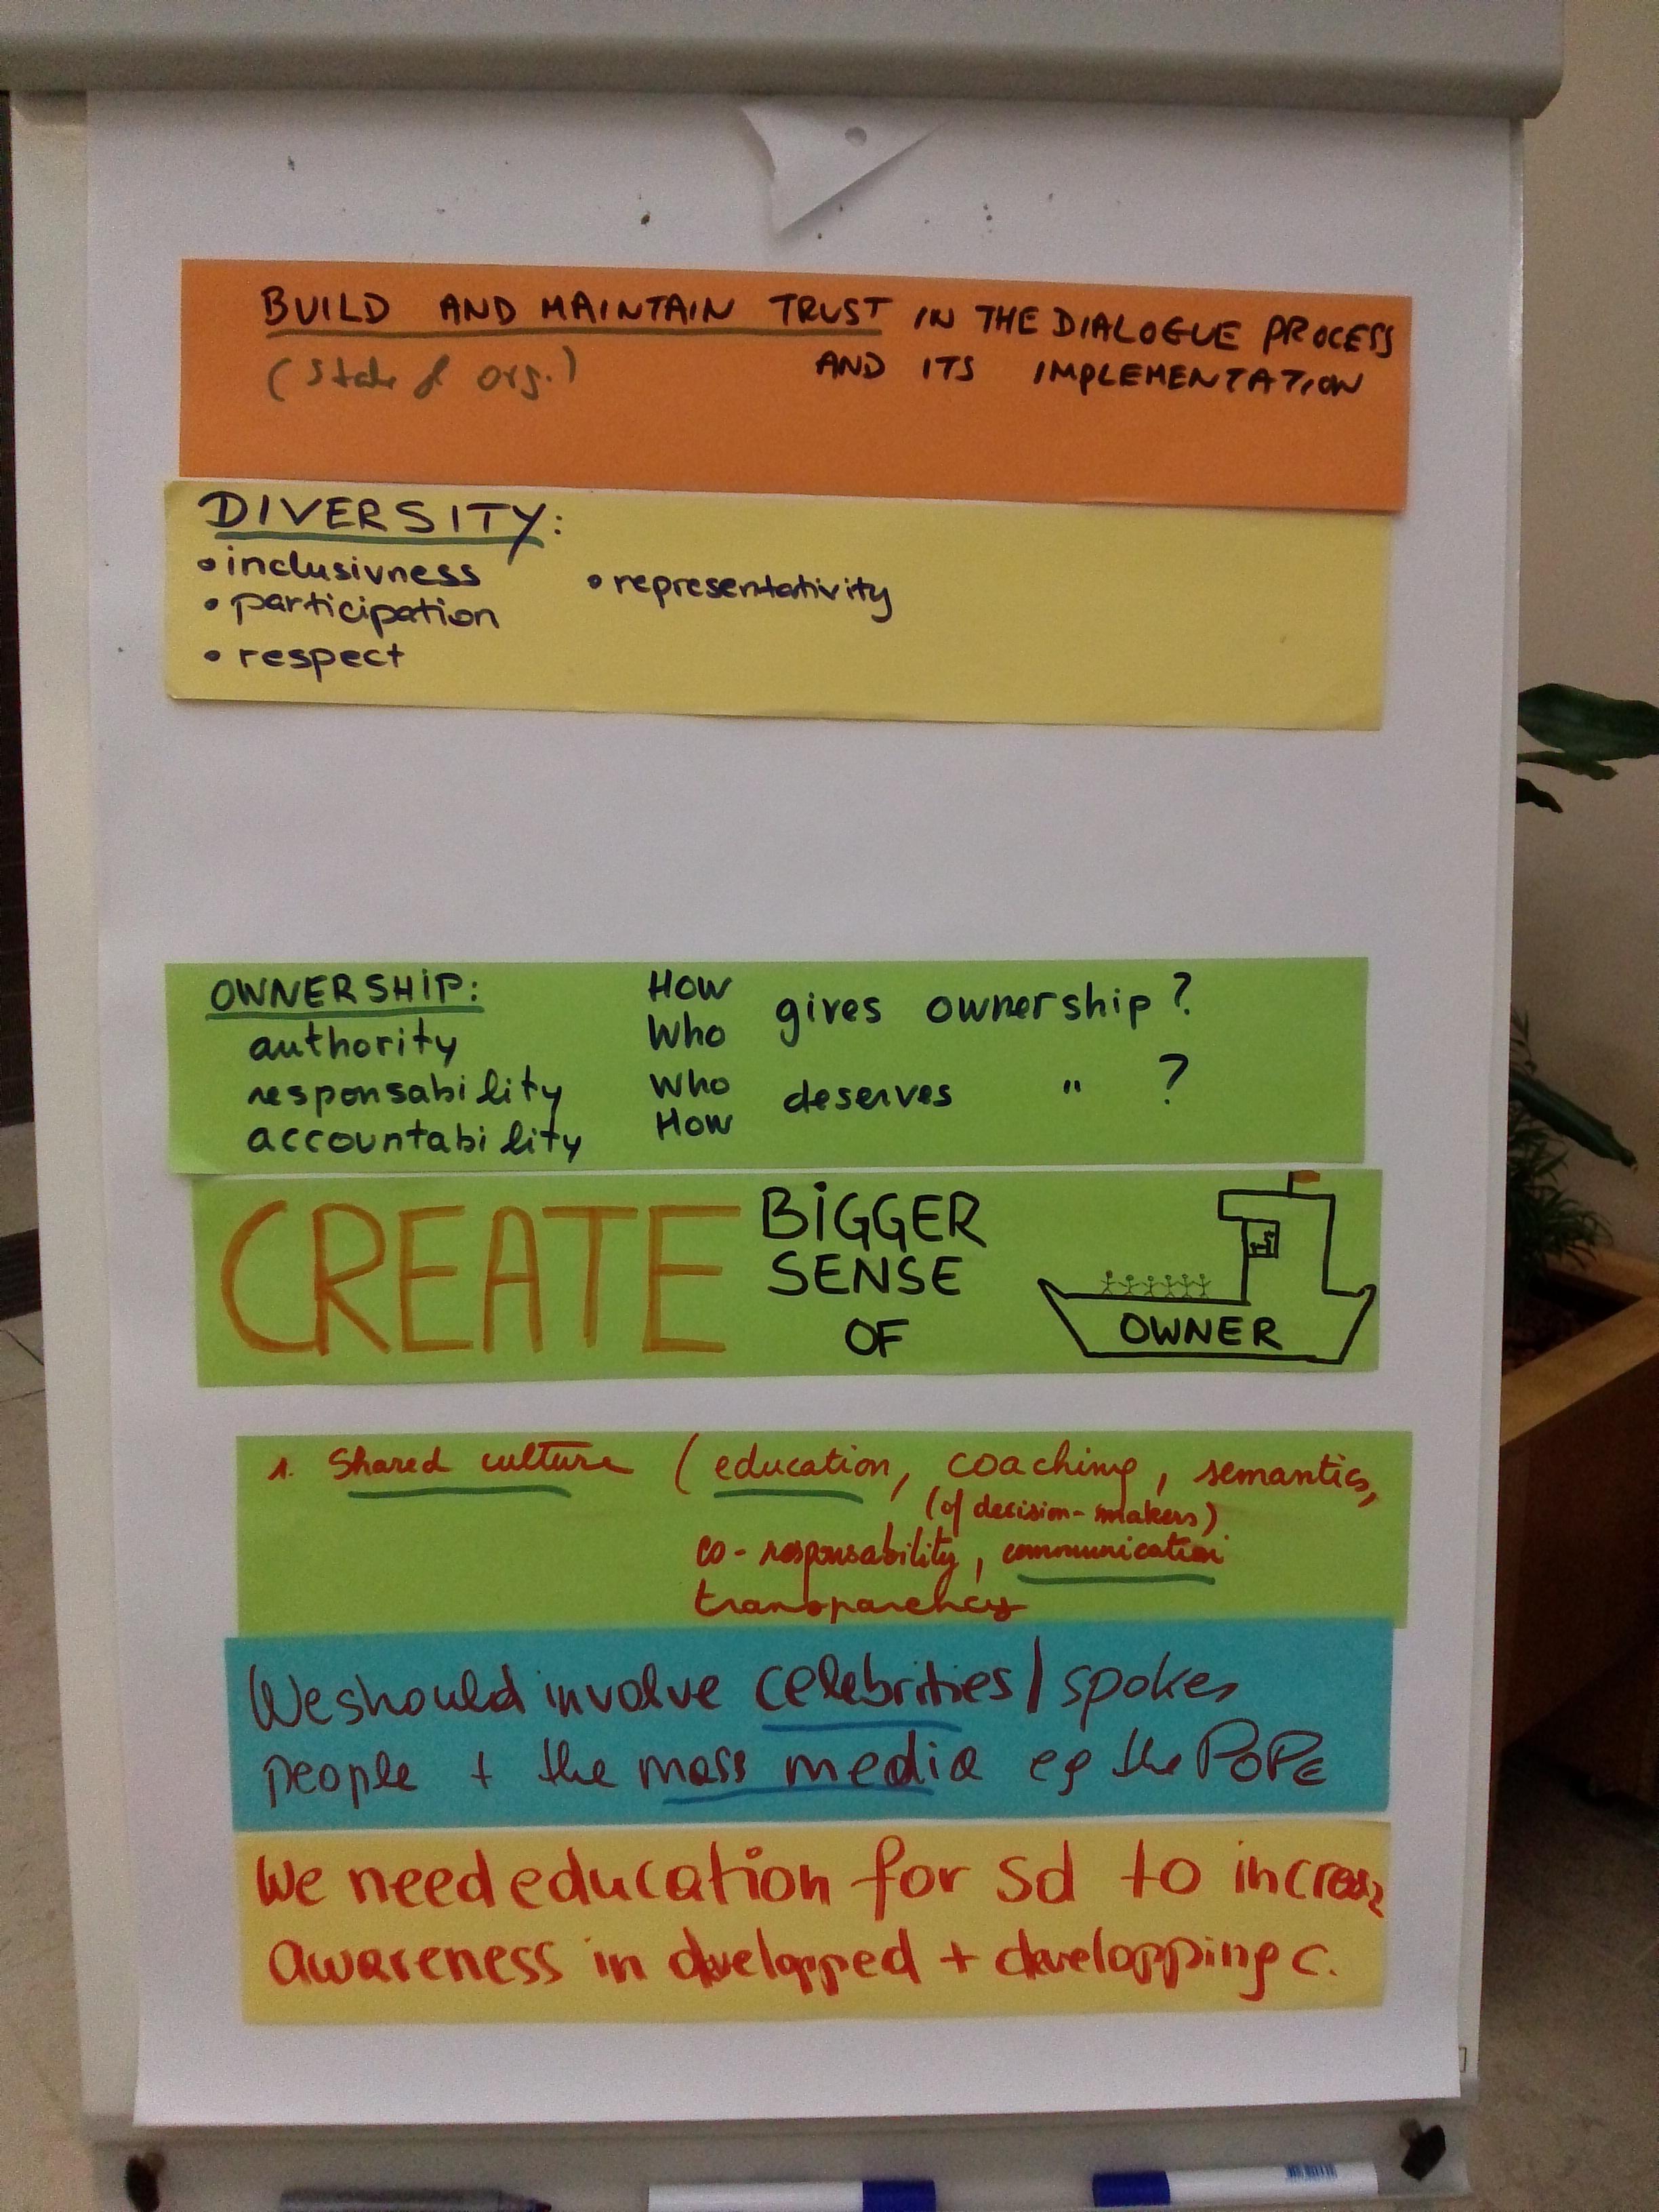 BUILD AND MAINTAIN TRUST IN THE DIALOGUE PROCESS
(State & org.) AND ITS IMPLEMENTATION
DIVERSITY:
• inclusivness
• representativity
• participation
• respect
OWNERSHIP:
authority
responsability
accountability
How
Who
gives ownership?
Who
How
deserves " ?
CREATE
BIGGER
SENSE
OF
OWNER
1. Shared culture (education, coaching, semantics,
(of decision-makers)
co-responsability, communication
transparency
We should involve celebrities/spokes
people + the mass media eg the POPE
We need education for sd to increase
awareness in developped + developping c.